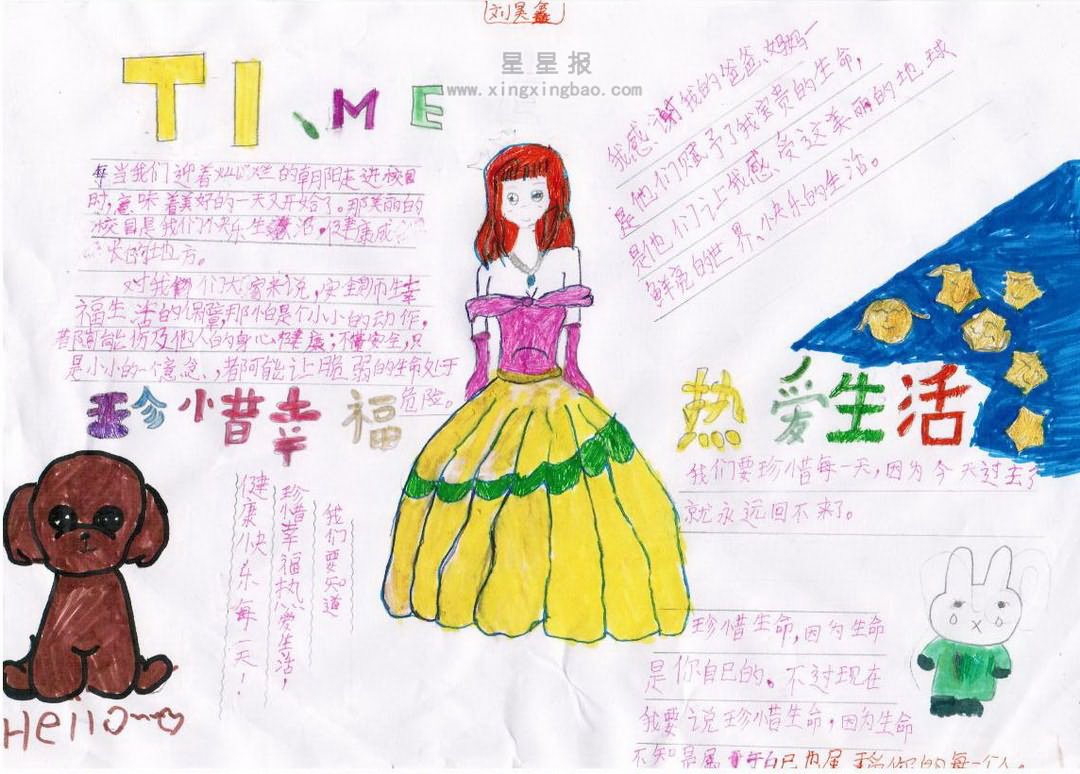 刘昊鑫
TI、ME
星星报
www.xingxingbao.com
每当我们迎着灿烂的朝阳走进校园
时,意味着美好的一天又开始了。那美丽的
校园是我们快乐生活,健康成
长的地方。
对我们大家来说,安全而生幸
福生活的保障,那怕是个小小的动作,
都可能伤及他人的身心健康;不
是小小的一个意念,都可能让脆弱的生命处于
危险。
我感谢我的爸爸、妈妈一
是他们赋予了我宝贵的生命,
是他们让我感受这美丽的地球
鲜亮的世界、快乐的生活。
珍惜幸福
热爱生活
我们要珍惜每一天,因为今天过去了
就永远回不来了。
我们要知道
珍惜幸福热爱生活,
健康快乐每一天!
Hello~
珍惜生命,因为生命
是你自己的。不过现在
我要说珍惜生命,因为生命
不知是属于自己也属于你的每一个人。